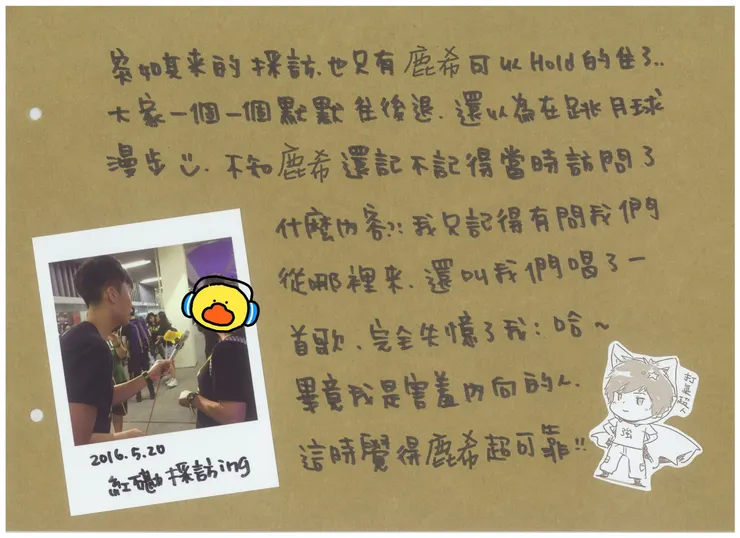 突如其來的採訪.也只有鹿希可以Hold的住了..
大家一個一個默默往後退.還以為在跳月球
漫步 .不知鹿希還記不記得當時訪問了
什麼內容?:我只記得有問我們
從哪裡來.還叫我們唱了一
首歌.完全失憶了我:哈~
畢竟我是害羞內向的人.
這時覺得鹿希超可靠!!
2016.5.20
採訪ing
強